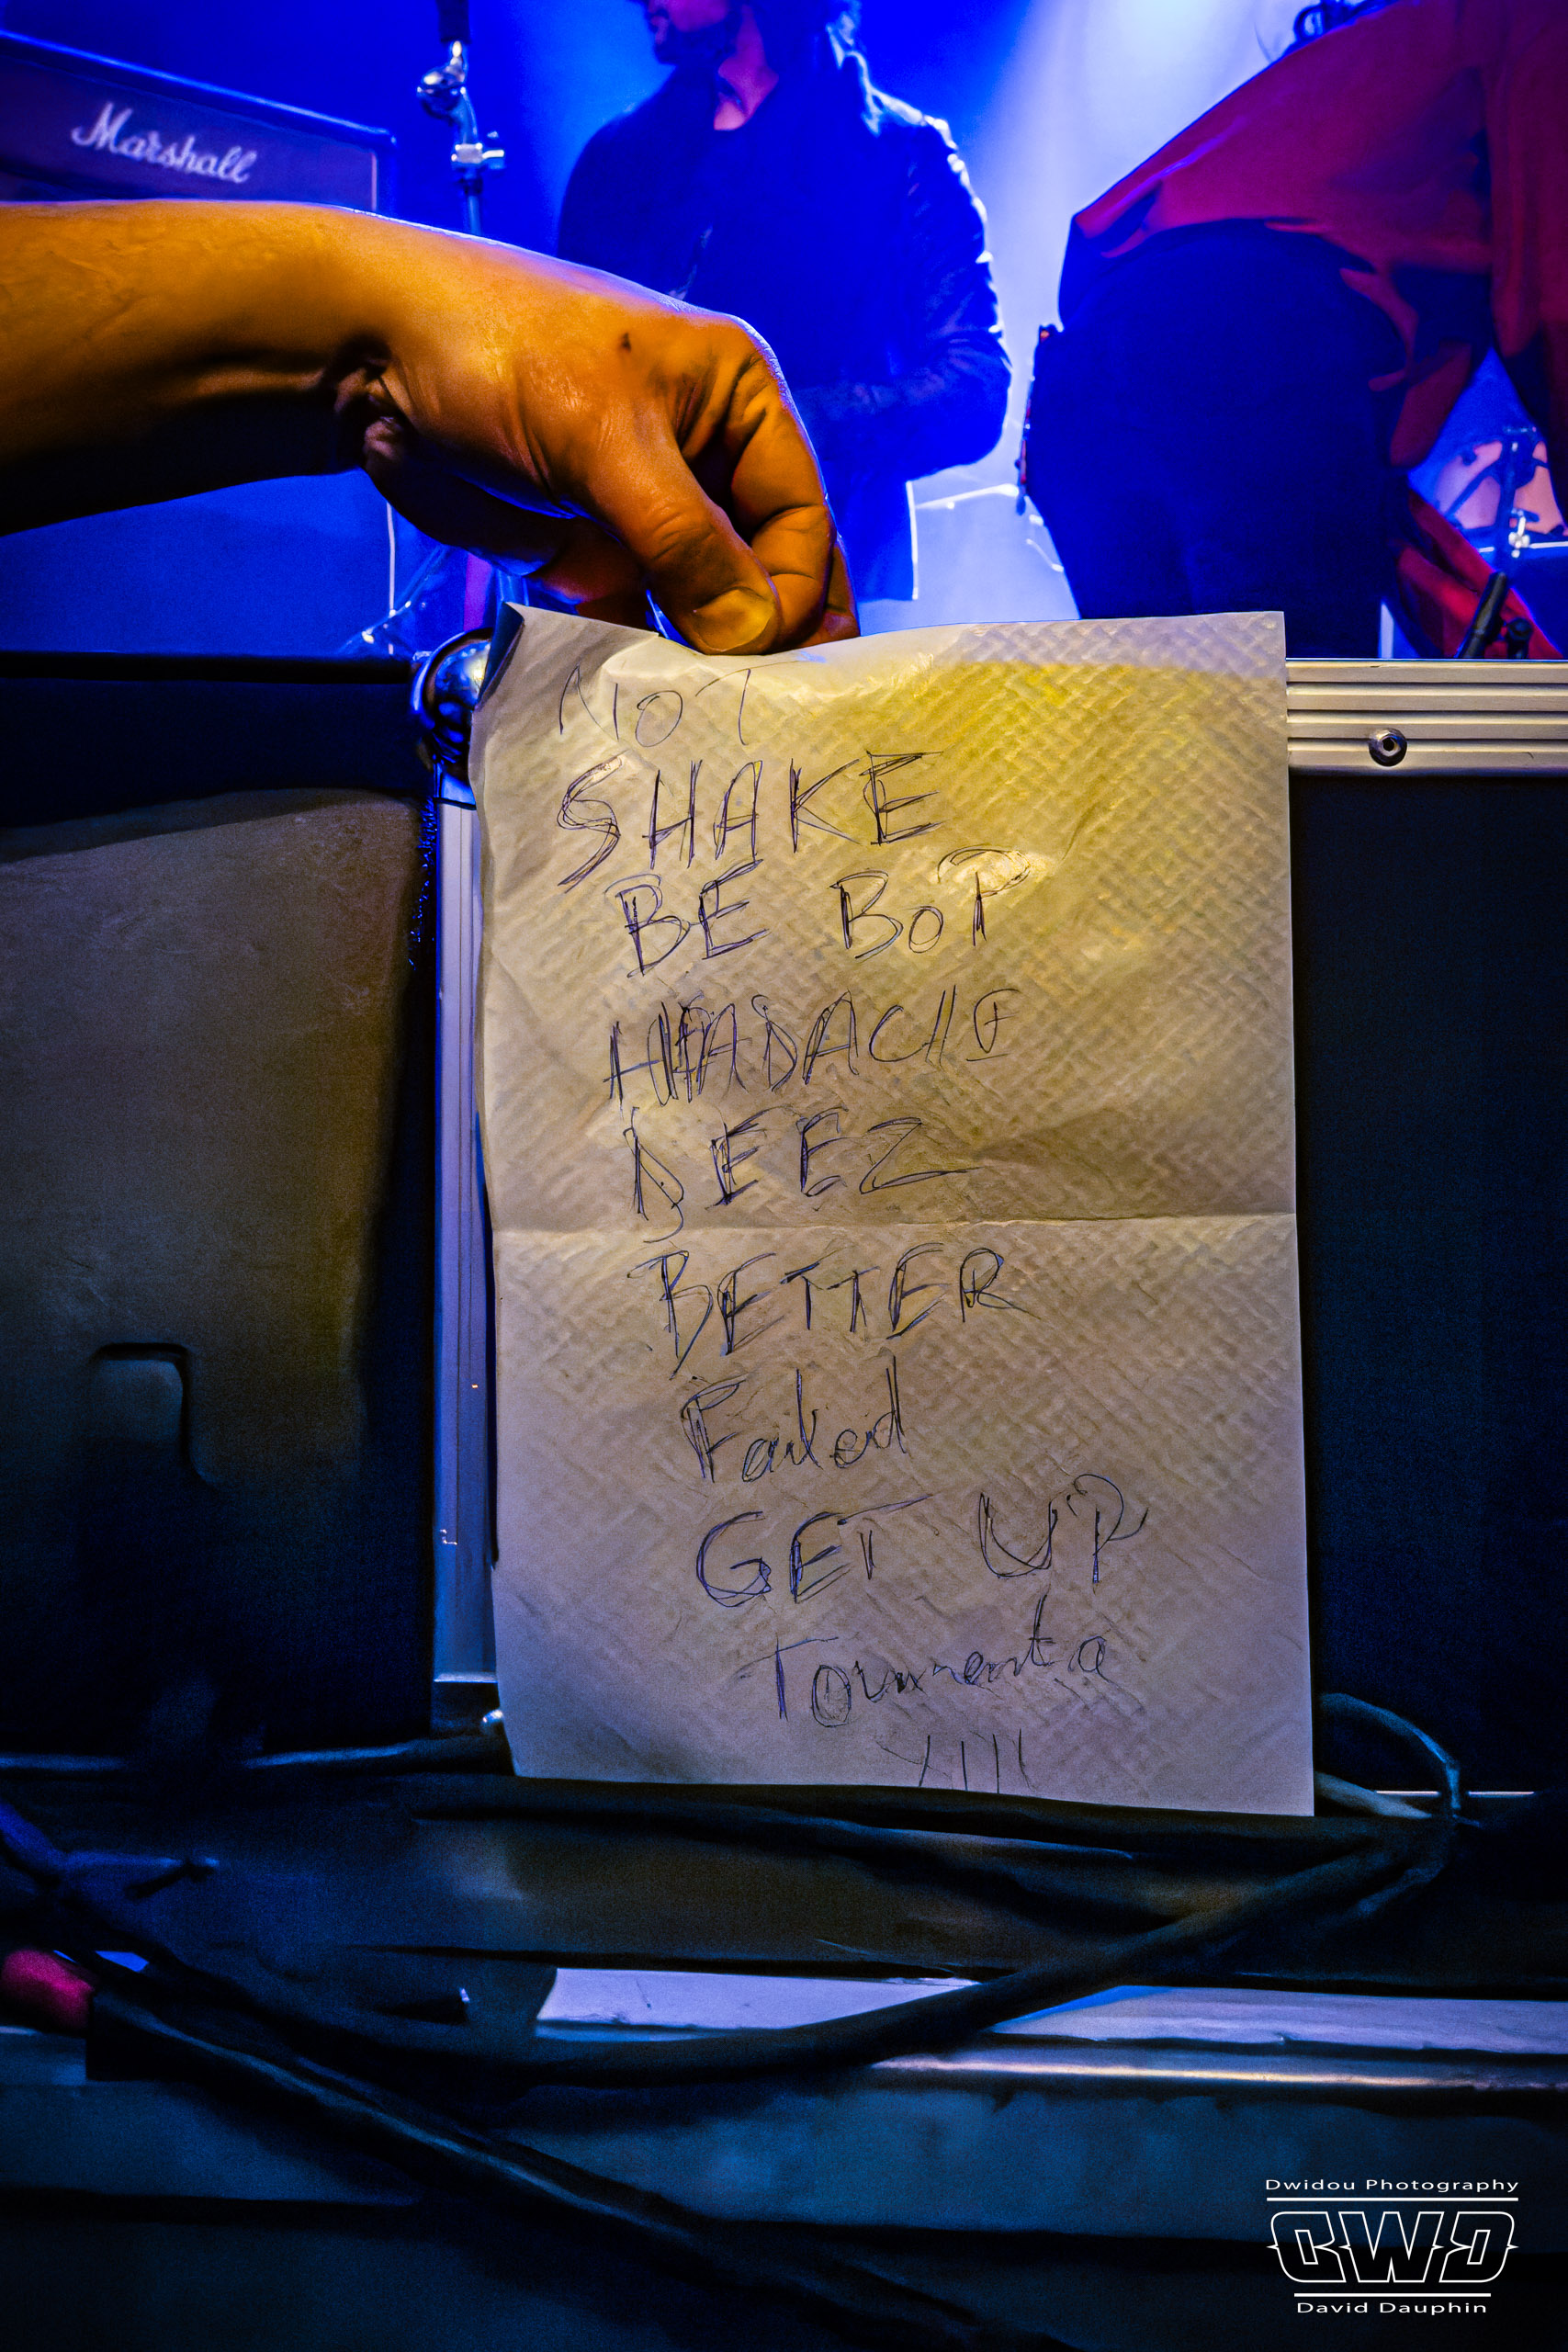 Marshall
NOT
SHAKE
BE BOP
HEADACHE
DEEZ
BETTER
Failed
GET UP
Tormenta
Dwidou Photography
DWD
David Dauphin